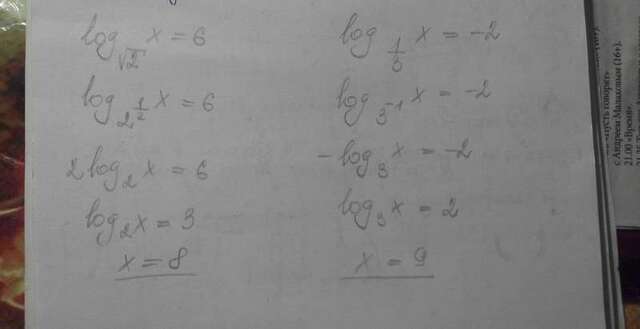 log_{√2} x = 6
log_{2^{1/2}} x = 6
2 log_2 x = 6
log_2 x = 3
x = 8
log_{1/3} x = -2
log_{3^{-1}} x = -2
-log_3 x = -2
log_3 x = 2
x = 9
«Пусть говорят»
с Андреем Малаховым (16+).
21.00 «Время».